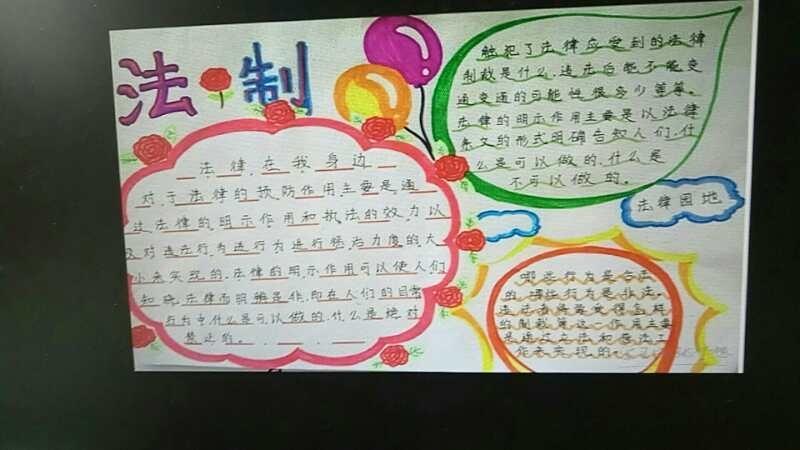 法制
法律在我身边
对于法律的预防作用主要是通
过法律的明示作用和执法的效力以
及对违法行为进行为进行惩治力度的大
小来实现的.法律的明示作用可以使人们
知晓.法律而明辨是非.即在人们的日常
行为中什么是可以做的.什么是绝对
禁止的。
触犯了法律应受到的法律
制裁是什么.违法后能不能变
通变通的可能性很多少等等。
法律的明示作用主要是以法律
条文的形式明确告知人们.什
么是可以做的.什么是
不可以做的。
法律园地
哪些行为是合法
的.哪些行为是非法。
违法者要受很怎样
的制裁等这一作用主要
是通过立法和普法工
作来实现的